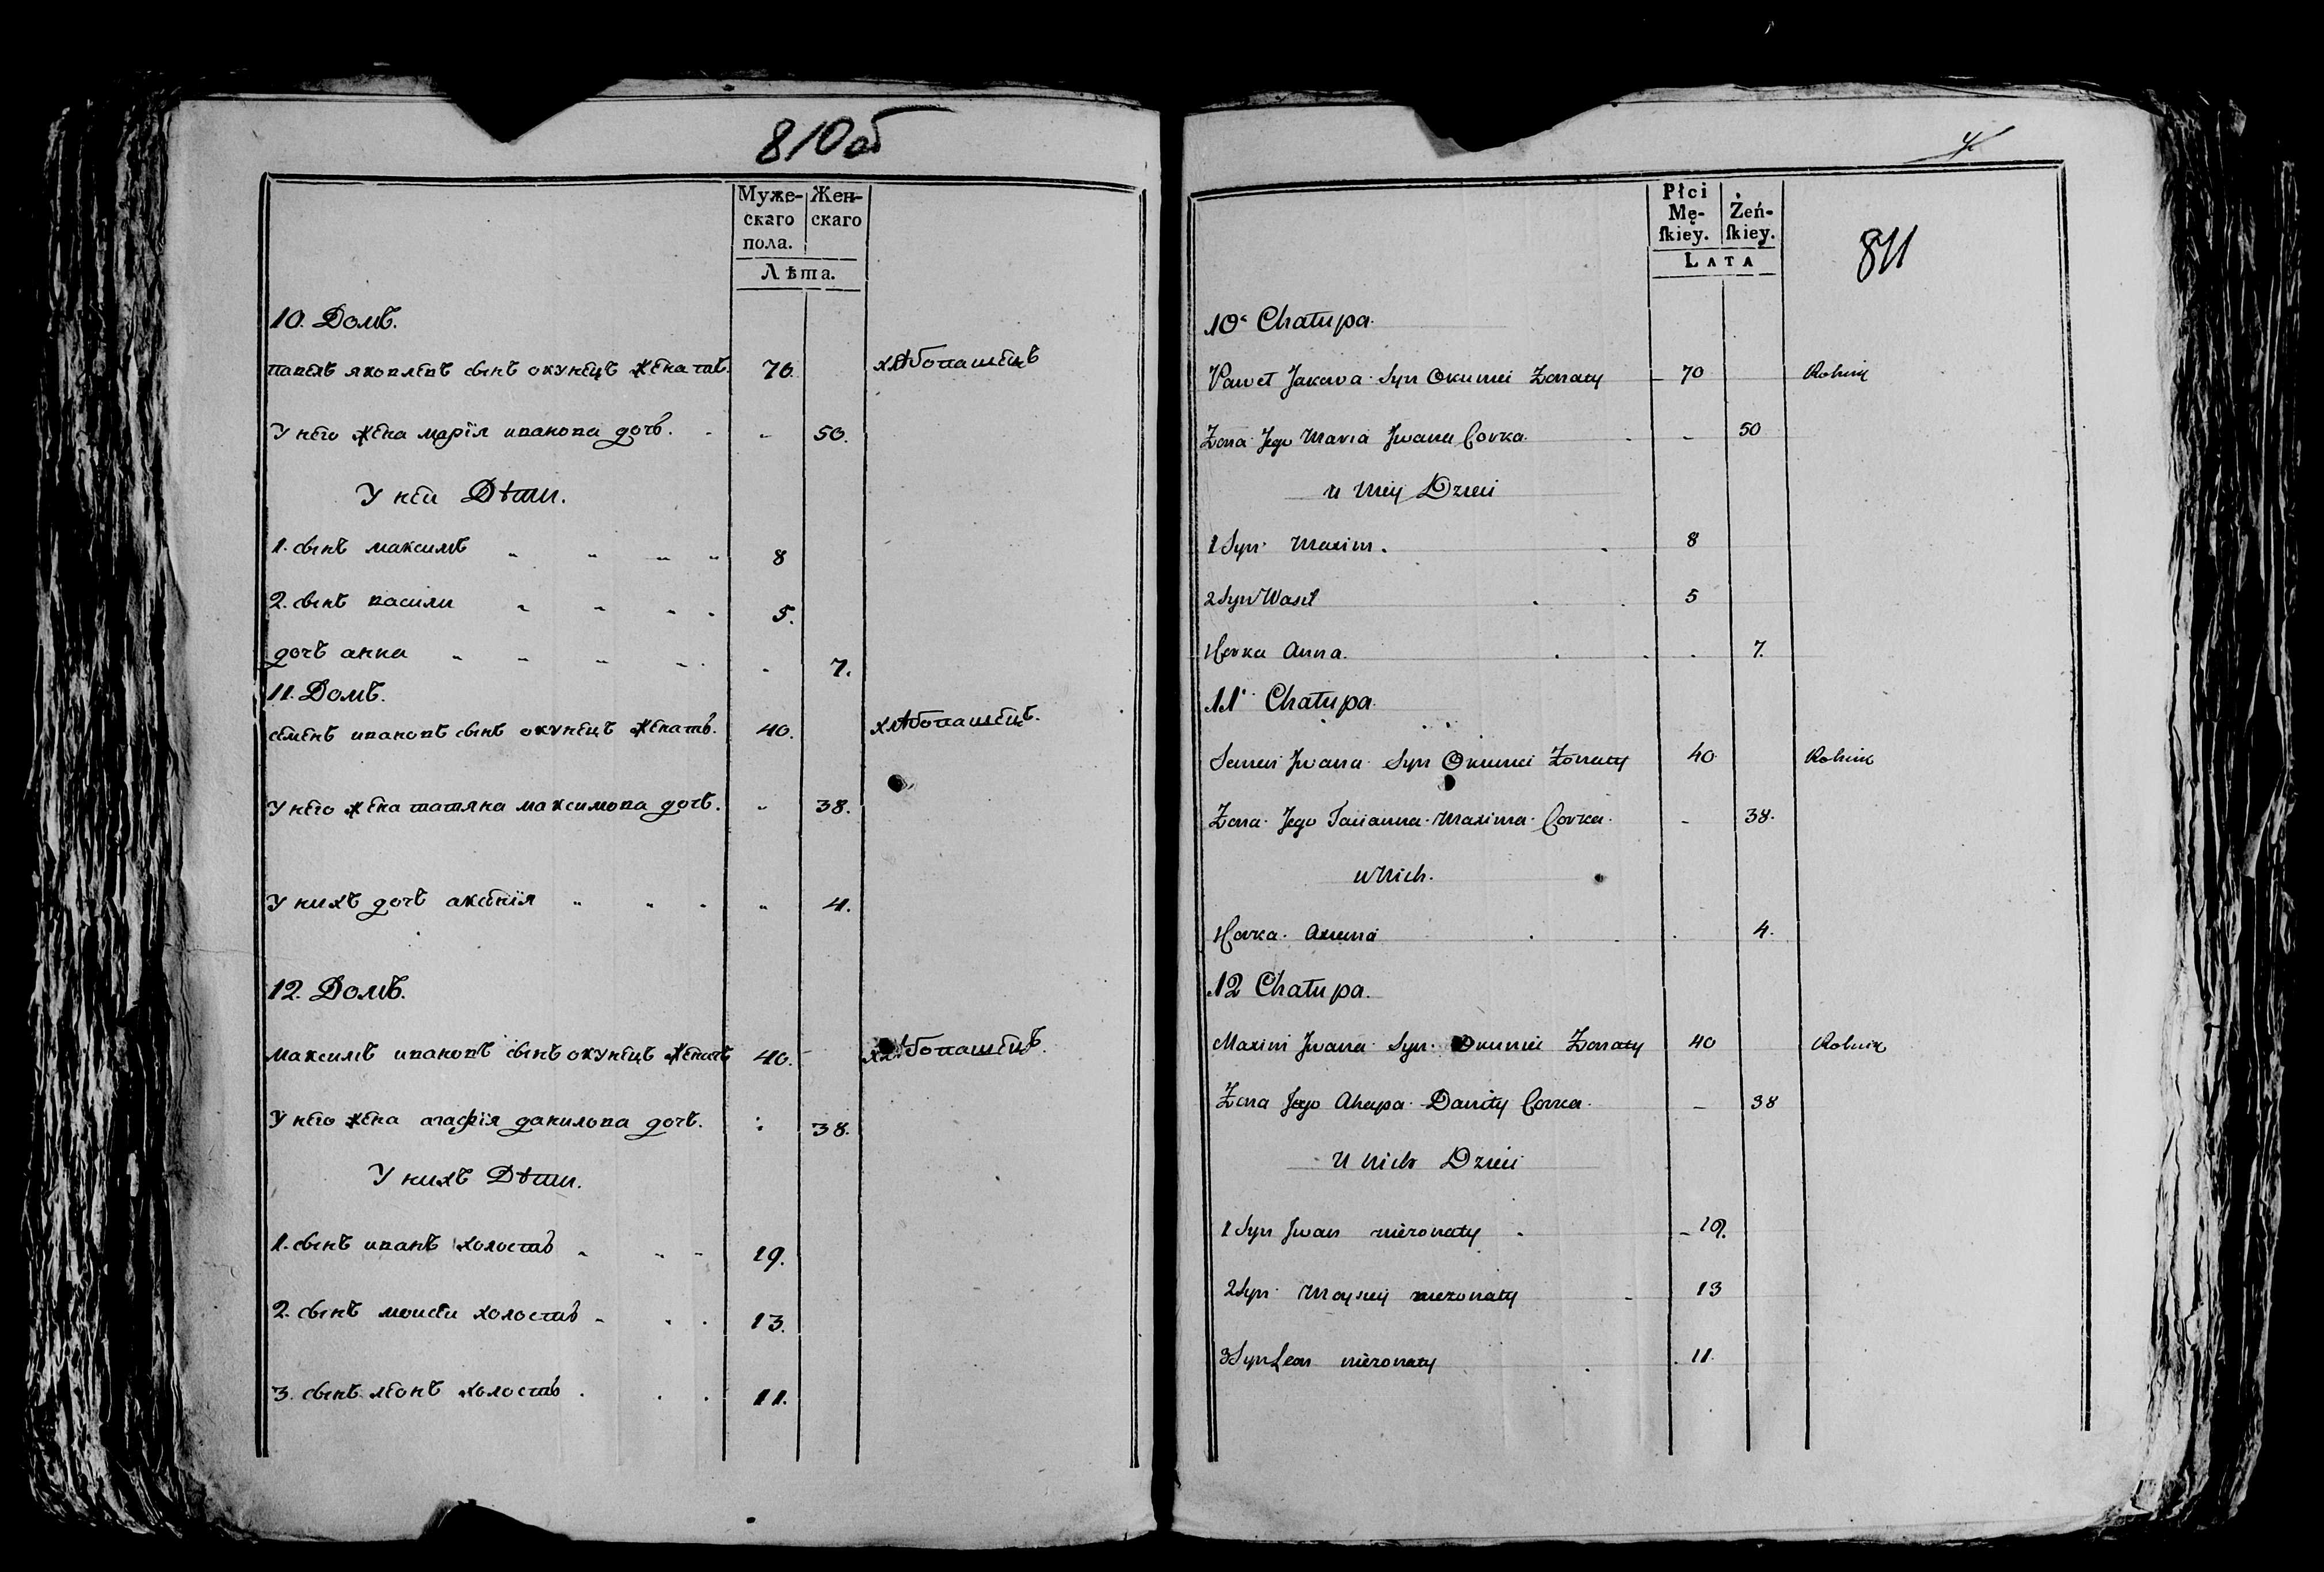 810об
Муже-
скаго
пола.
Жен-
скаго
Лѣта.
10. Домъ.
павелъ яковлевъ сынъ окунецъ женатъ. 70. хлѣбопашецъ
У него жена марїя иванова дочь. 50.
У неи Дѣти.
1. сынъ максимъ 8
2. сынъ васили 5.
дочь анна 7.
11. Домъ.
семенъ ивановъ сынъ окунецъ женатъ. 40. хлѣбопашецъ.
У него жена татяна максимова дочь. 38.
У нихъ дочь аксенїя 4.
12. Домъ.
максимъ ивановъ сынъ окунецъ женатъ 40. хлѣбопашецъ.
У него жена агафїя данилова дочь. 38.
У нихъ Дѣти.
1. сынъ иванъ холостъ 19.
2. сынъ моисеи холостъ 13.
3. сынъ леонъ холостъ 11.
4
811
Płci
Mę-
ſkiey.
Żeń-
ſkiey.
LATA
10 Chałupa.
Paweł Jakowa Syn Okuniei Żonaty 70 Rolnik
Żona Jego Maria Jwana Corka. 50
u Niey Dzieci
1 Syn Maxim. 8
2 Syn Wasil 5
1 Corka Anna. 7.
11 Chałupa.
Semen Jwana Syn Okuniei Żonaty 40 Rolnik
Żona Jego Tacianna Maxima Corka. 38.
u Nich.
1 Corka. Axenia 4.
12 Chałupa.
Maxim Jwana Syn. Okuniei Żonaty 40 Rolnik
Żona Jego Ahapa Daniły Corka. 38
U nich Dzieci
1 Syn Jwan nieżonaty 19.
2 Syn Moysiey nieżonaty 13
3 Syn Leon nieżonaty 11.